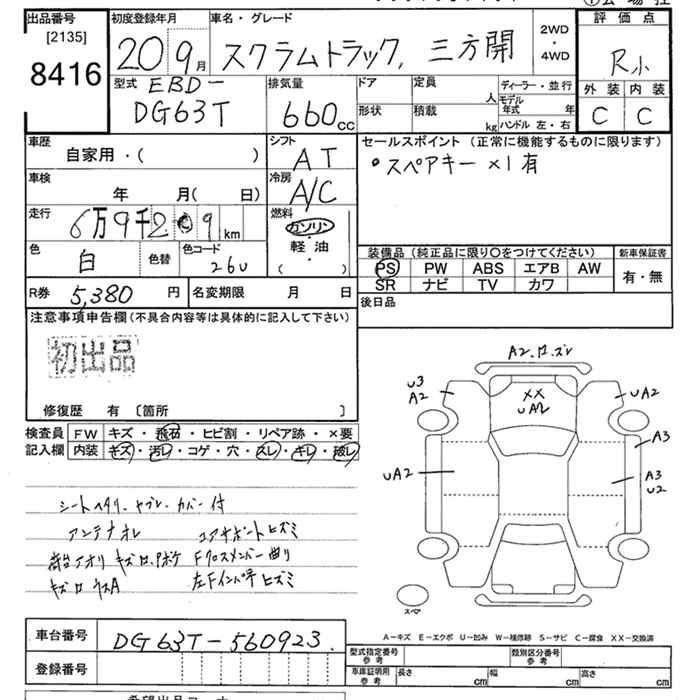 出品番号
[2135]
8416
初度登録年月
20 9月
車名・グレード
スクラムトラック, 三方開
2WD
・
4WD
評価点
R小
外装 内装
C C
型式 EBD-
DG63T
排気量
660 cc
ドア
形状
定員 人
積載 kg
ディーラー・並行
モデル年式 年
ハンドル 左・右
車歴
自家用・( )
シフト
AT
車検
年 月( 日)
冷房
A/C
走行
6万9千2 9 km
燃料
ガソリン
・
軽・油
( ・ )
色
白
色替
色コード
26U
セールスポイント (正常に機能するものに限ります)
・スペアキー ×1有
装備品 (純正品に限り〇をつけてください)
PS PW ABS エアB AW
SR ナビ TV カワ
新車保証書
有・無
R券 5,380 円
名変期限 月 日
後日品
注意事項申告欄(不具合内容等は具体的に記入して下さい)
初出品
修復歴 有 〔箇所 〕
検査員 FW キズ・飛石・ヒビ割・リペア跡・×要
記入欄 内装 キズ・汚レ・コゲ・穴・スレ・キレ・破レ
シートヘタリ、ヤブレ・カバー付
アンテナオレ
コアサポートヒズミ
荷台アオリ キズロ.Pホケ
Fクロスメンバー曲り
左Fインパネヒズミ
A2.ロ.ズレ
U3
A2
XX
UA2
UA2
A3
UA2
A3
U2
スペア
A-キズ E-エクボ U-凹み W-補修跡 S-サビ C-腐食 XX-交換済
車台番号 DG63T-560923.
登録番号
型式指定番号
参考
類別区分番号
参考
車庫証明用
参考
長さ cm 幅 cm 高さ cm